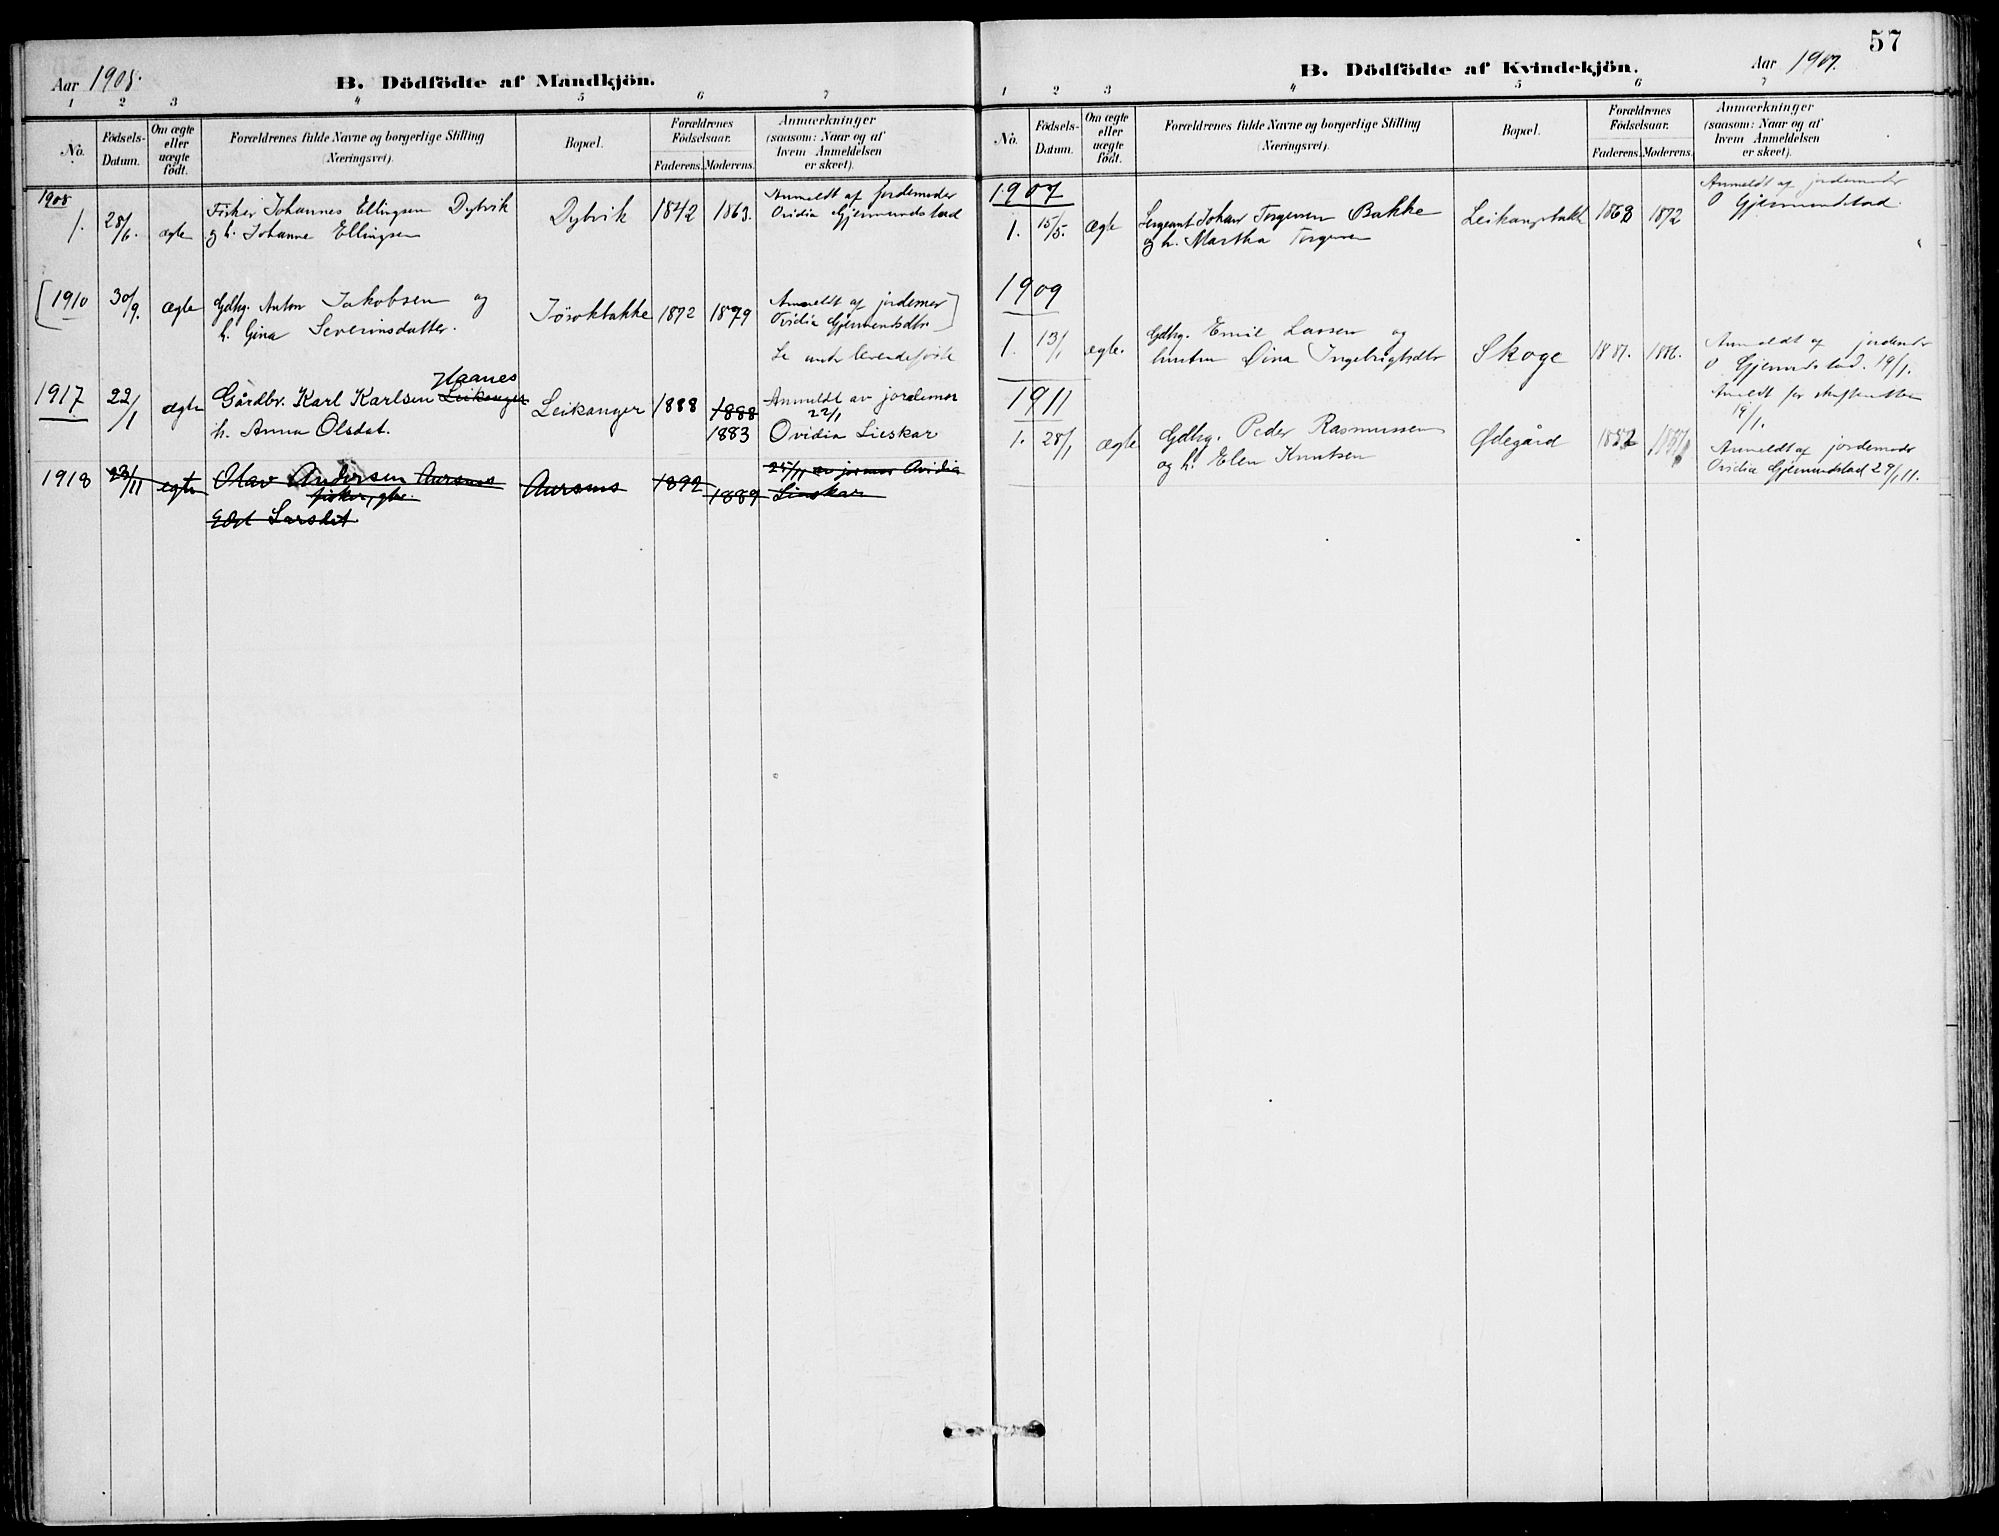 57
Aar 1908.
B. Dödfödte af Mandkjön.
1 2 3 4 5 6 7
No.
Födsels-Datum.
Om ægte eller uægte födt.
Forældrenes fulde Navne og borgerlige Stilling
(Næringsvei).
Bopæl.
Forældrenes Födselsaar.
Faderens. Moderens.
Anmærkninger
(saasom: Naar og af
hvem Anmeldelsen
er skeet).
1908
1. 28/6. ægte Fisker Johannes Ellingsen Dybvik Dybvik 1842 1863. Anmeldt af jordemoder
og h. Johanne Ellingsen Ovidia Gjermundstad
[1910 30/9. ægte Gdbg. Anton Jakobsen og 1872 1879 Anmeldt af jordemor
h. Gina Severinsdatter. Ovidia Gjermundsdtr]
Se under levendefödte
1917 22/1 ægte Gårdbr. Karl Karlsen Leikanger Haanes Leikanger 1888 1888 Anmeldt av jordemor
22/1
h. Anna Olsdat. 1883 Ovidia Lieskar
1918 23/11 egte Olav Andersen Aursnes Aursnes 1892 25/11 av jormor Ovidia
fisker, gbr. 1889 Lieskar
Larsdat
Aar 1907.
B. Dödfödte af Kvindekjön.
1 2 3 4 5 6 7
No.
Födsels-Datum.
Om ægte eller uægte födt.
Forældrenes fulde Navne og borgerlige Stilling
(Næringsvei).
Bopæl.
Forældrenes Födselsaar.
Faderens. Moderens.
Anmærkninger
(saasom: Naar og af
hvem Anmeldelsen
er skeet).
1907
1. 15/5. Ægte Sergeant Johan Torgersen Bakke Leikangbakk 1868 1872 Anmeldt af jordemoder
og h. Martha Torgersen O Gjermundstad.
1909
1. 13/1 ægte. Gdbg. Emil Larsen og Skoge 1881. 1886. Anmeldt af jordemdr
hustru Dina Ingebrigtsdtr O Gjermundstad. 19/1.
Anmeldt for skifteretten
19/1.
1911
1. 28/1 ægte Gdbg. Peder Rasmussen Ødegård 1852 Anmeldt af jordemoder
og h. Elen Knutsen Ovidia Gjermundstad 29/1 11.